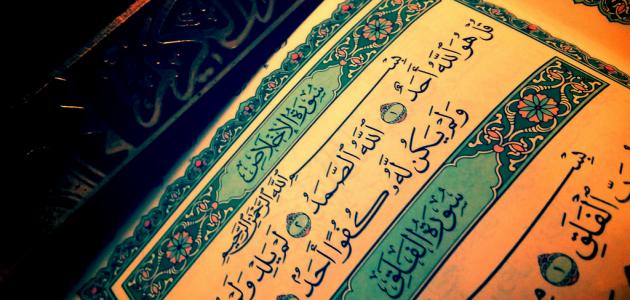 سُورَةُ الإِخْلَاصِ
بِسْمِ اللَّهِ الرَّحْمَٰنِ الرَّحِيمِ
قُلْ هُوَ اللَّهُ أَحَدٌ ١ اللَّهُ الصَّمَدُ ٢ لَمْ يَلِدْ وَلَ
وَلَمْ يَكُن لَّهُ كُفُوًا أَحَدٌ
سُورَةُ الفَلَقِ
بِسْ
رَبِّ الْفَلَقِ ١